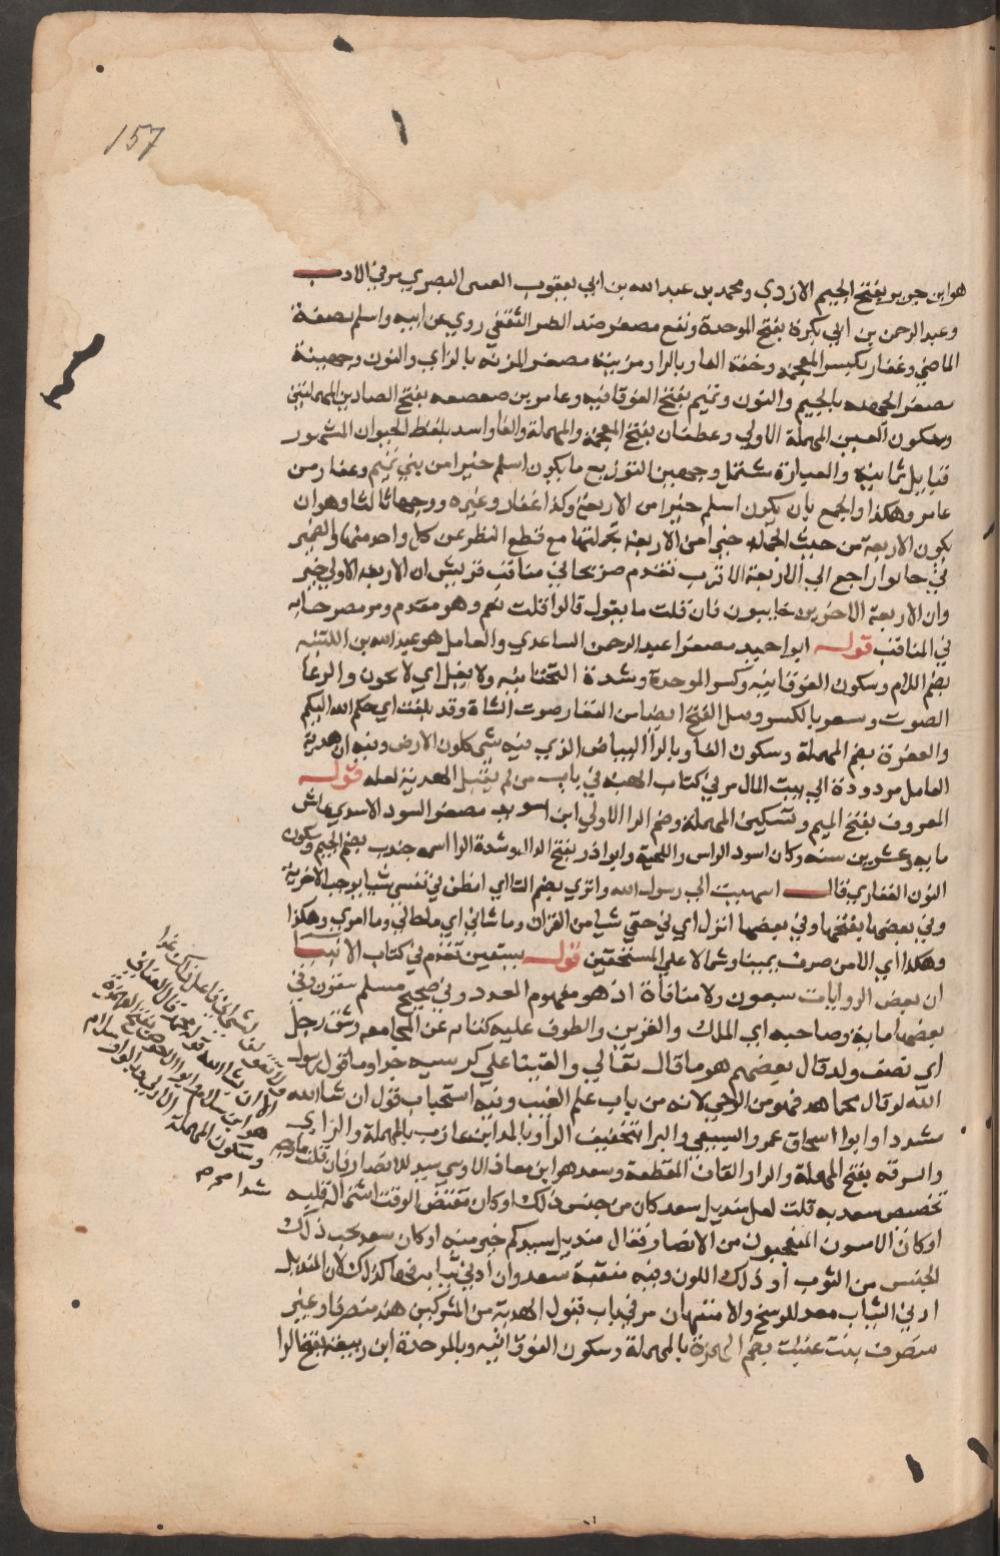 157
هو ابن جرير بفتح الجيم الازدي ومحمد بن عبد الله بن ابي يعقوب البصري مر في الادب
وعبد الرحمن بن ابي بكرة بفتح الموحدة ونفع مصغر ضد الضر الثقفي روي عن ابيه واسلم بصفة
الماضي وغفار بكسر المعجمة وخفة الفا وبالرا ومزينة مصغر المزنة بالزاي والنون وجهينة
مصغر الجهنه بالجيم والنون وتميم بفتح الفوقانيه وعامر بن صعصعه بفتح الصادين المهملتين
وسكون العين المهملة الاولي وغطفان بفتح المعجمة والمهملة والفا واسد بلفظ الحيوان المشهور
قبايل ثمانية والعبارة تشتمل وجهين التوزيع ما يكون اسلم خيرا من بني تميم وغفار من
عامر وهكذا والجمع بان يكون اسلم خيرا من الاربعة وكذا غفار وغيره ووجها ثالثا وهو ان
يكون الاربعة من حيث الجملة خيرا من الاربعة بجملتها مع قطع النظر عن كل واحد منها والضمير
في خابوا راجع الي الاربعة الاقرب تقدم صريحا في مناقب قريش ان الاربعة الاولي خير
وان الاربعة الاخرين خايبون فان قلت ما يقول قالوا قلت نعم وهو مقدم ومر مصرحا به
في المناقب قوله ابو احيد مصغرا عبد الرحمن الساعدي والعامل هو عبد الله بن اللتبيه
بضم اللام وسكون الفوقانيه وكسر الموحدة وشدة التحتانيه ولا يغل اي لا يخون والرغا
الصوت وبالكسر وقيل الفتح ايضا من اليعار صوت الشاة وقد بلغت اي حكم الله اليكم
والعفرة بضم المهملة وسكون الفا وبالرا البياض الذي فيه شي كلون الارض وفيه ان هدية
العامل مردودة الي بيت المال مر في كتاب الهبه في باب من لم يقبل الهدية لعله قوله
المعرور بفتح الميم وتسكين المهملة وضم الرا الاولي ابن سويد مصغر السود الاسدي عاش
ماية وعشرين سنه وكان اسود الراس واللحية وابو اذر بفتح الذال وشدة الرا اسمه جندب بضم الجيم وسكون
النون الغفاري قال انتهيت الي رسول الله واتري بضم التا اي اتظن في نفسي شيا يوجب الاخرية
وفي بعضها بفتحها وفي بعضها انزل اي في حقي شيا من القران وما شاني اي ما حالي وما امري وهكذا
وهكذا اي الا من صرف يمينا وشمالا علي المستحقين قوله بتسعين تقدم في كتاب الانبيا
ان بعض الروايات سبعون ولا منافاة اذ هو مفهوم العدد وفي صحيح مسلم ستون وفي
بعضها ماية وصاحبه اي الملك والقرين والطوف عليه كناية عن المجامعه وشق رجل
اي نصف ولد قال بعضهم هو ما قال تعالي والقينا علي كرسيه جسدا وما قول رسول
الله لو قال لجاهد فهو من الوحي لانه من باب علم الغيب وفيه استحباب قول ان شا الله
مشددا وابو اسحاق عمرو السبيعي والبرا بتخفيف الرا وبالمد ابن عازب بالمهملة والزاي
والسرقه بفتح المهملة والرا والقاف القطعة وسعد هو ابن معاذ الاوسي سيد الانصار فان قلت ما وجه
تخصيص سعد به قلت لعل منديل سعد كان من جنس ذلك او كان مقتضي الوقت استمالة قلبه
او كان اللامسون المتعجبون من الانصار فقال منديل سيدكم خير منه او كان سعد يحب ذلك
الجنس من الثوب او ذلك اللون وفيه منقبة سعد وان ادني ثيابه فيها كذلك لان المنديل
ادني الثياب معد للوسخ والامتهان مر في باب قبول الهدية من المشركين هند منصرفا وغير
منصرف بنت عتبة بضم المهملة وسكون الفوقانيه وبالموحدة ابن ربيعه بفتح الرا
الا ان يشا الله قوله محمد قال الغساني
هو ابن سلام وابو الاحوص بفتح الهمزة
وسكون المهملة الاولي وبالواو سلام